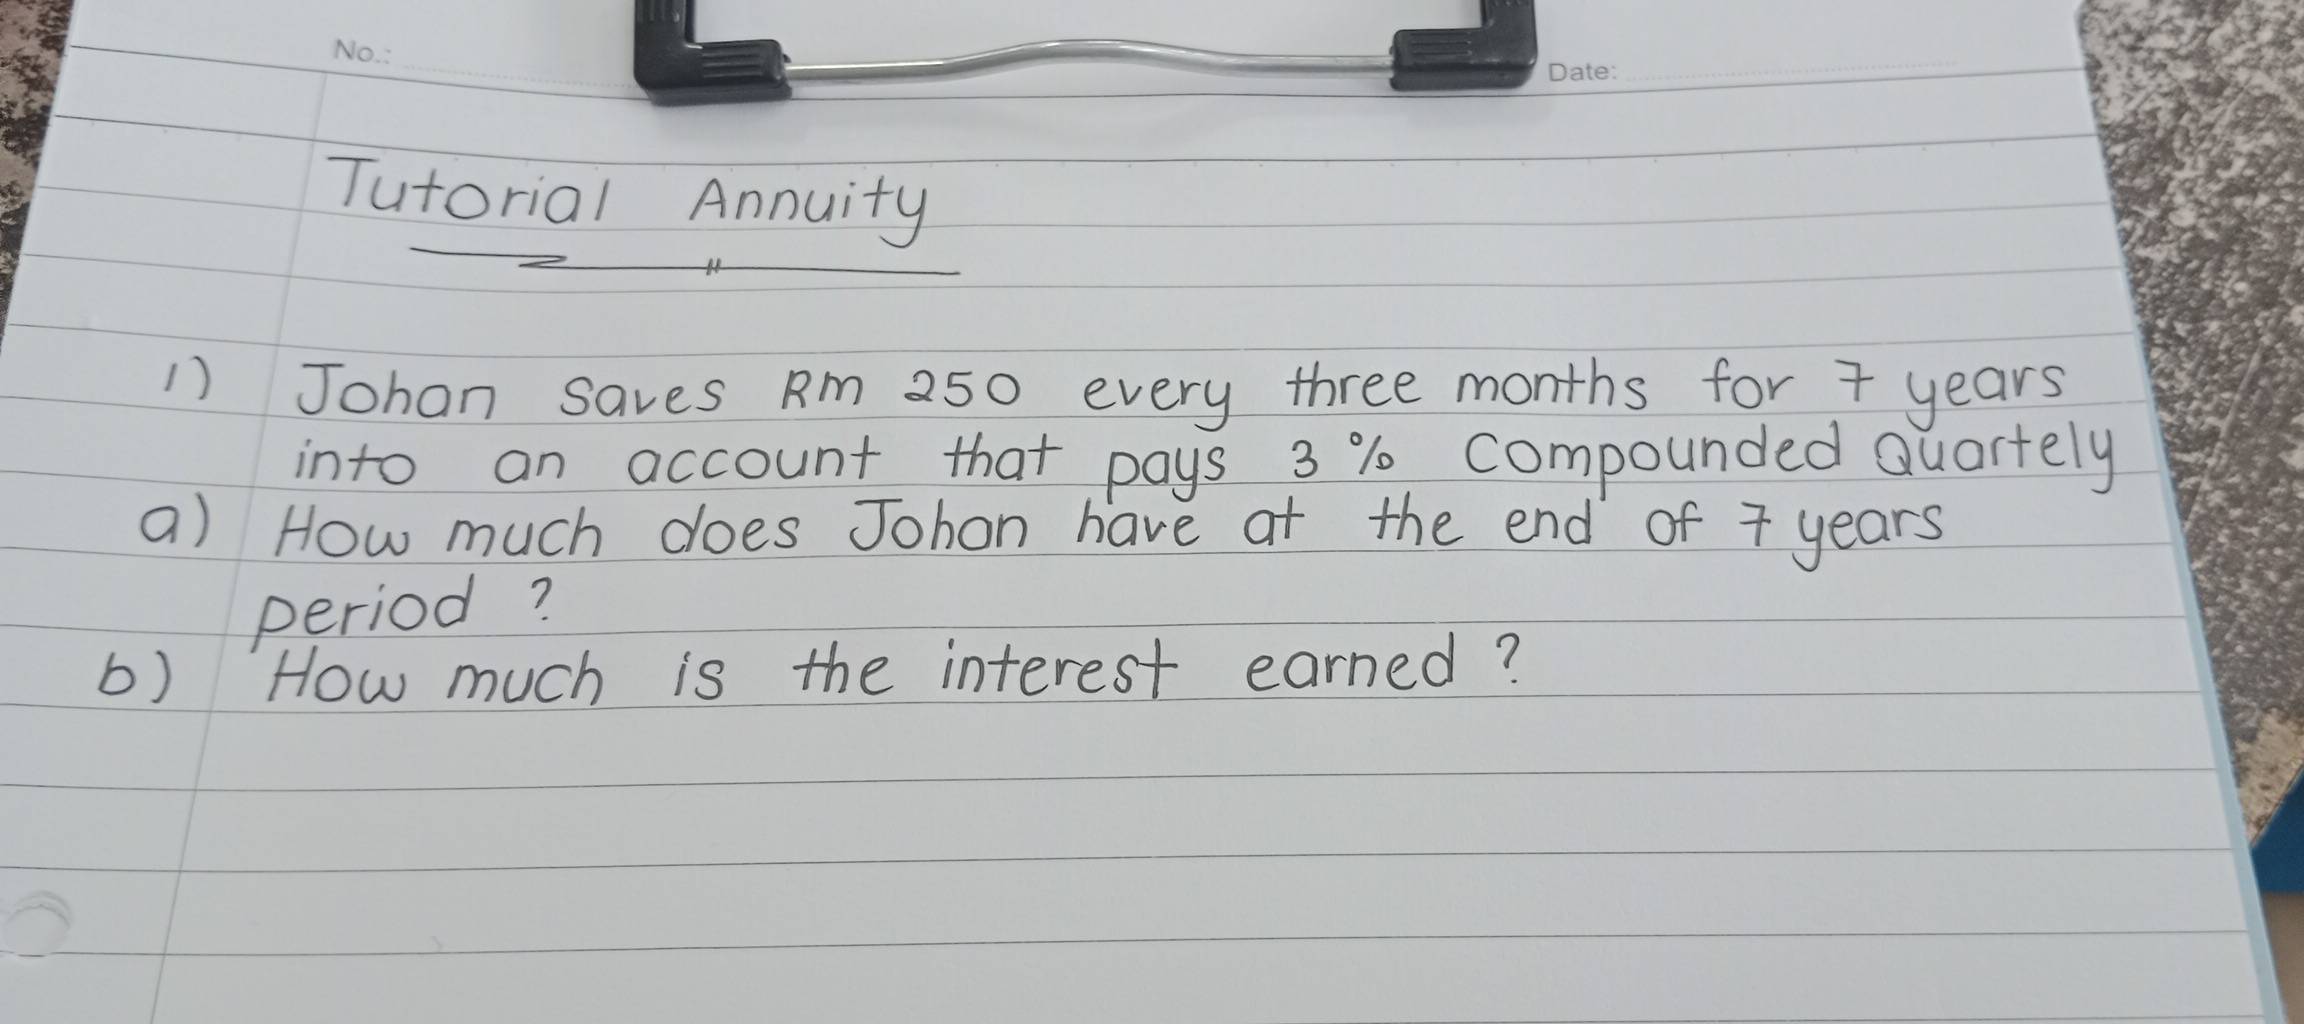 No.:
Date:
Tutorial Annuity
1) Johan saves RM 250 every three months for 7 years
into an account that pays 3 % compounded Quartely
a) How much does Johan have at the end of 7 years
period ?
b) How much is the interest earned ?